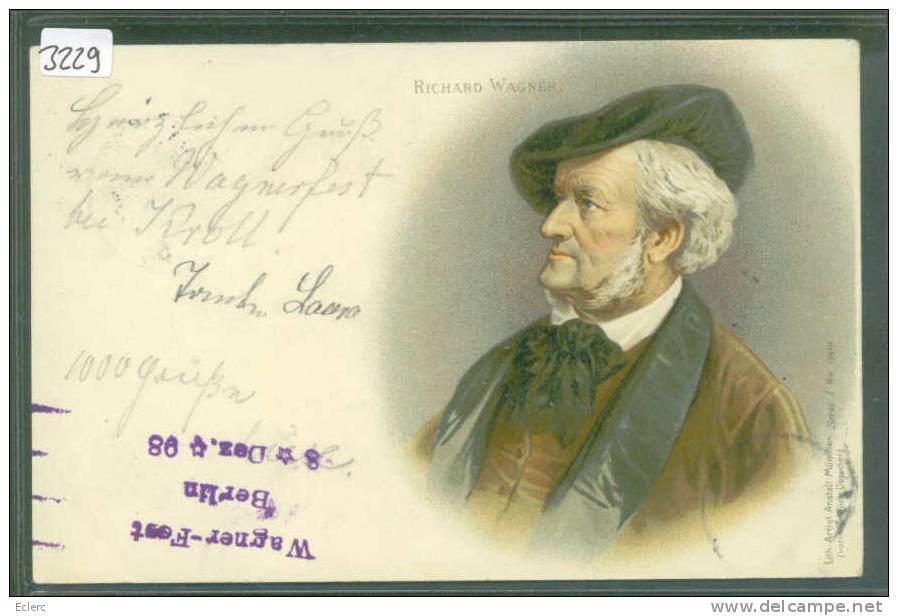 3229
RICHARD WAGNER.
Herzlichen Gruß
vom Wagnerfest
bei Kroll
Laura
1000 Grüße
Wagner-Fest
Berlin
8 ☆ Dez. ☆ 98
Lith. Artist. Anstalt München, Serie I No.
(vorm. Gebr. Obpacher)
Eclerc
www.delcampe.net